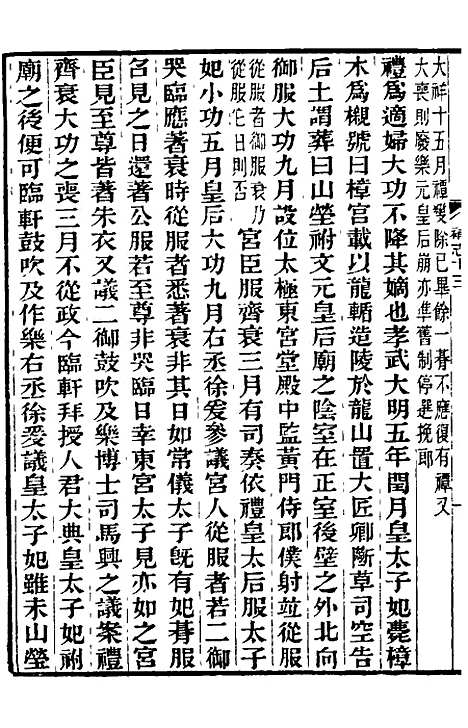 大祥十五月禫變除已畢餘一朞不應復有禫又
大喪則廢樂元皇后崩亦準舊制停選挽郎
禮爲適婦大功不降其嫡也孝武大明五年閏月皇太子妃薨樟
木爲櫬號曰樟宮載以龍輴造陵於龍山置大匠卿斷草司空告
后土謂葬曰山塋祔文元皇后廟之陰室在正室後壁之外北向
御服大功九月設位太極東宮堂殿中監黃門侍郎僕射並從服
從服者御服衰乃
從服它日則否
宮臣服齊衰三月有司奏依禮皇太后服太子
妃小功五月皇后大功九月右丞徐爰參議宮人從服者若二御
哭臨應著衰時從服者悉著衰非其日如常儀太子旣有妃朞服
召見之日還著公服若至尊非哭臨日幸東宮太子見亦如之宮
臣見至尊皆著朱衣又議二御鼓吹及樂博士司馬興之議案禮
齊衰大功之喪三月不從政今臨軒拜授人君大典皇太子妃祔
廟之後便可臨軒鼓吹及作樂右丞徐爰議皇太子妃雖未山塋